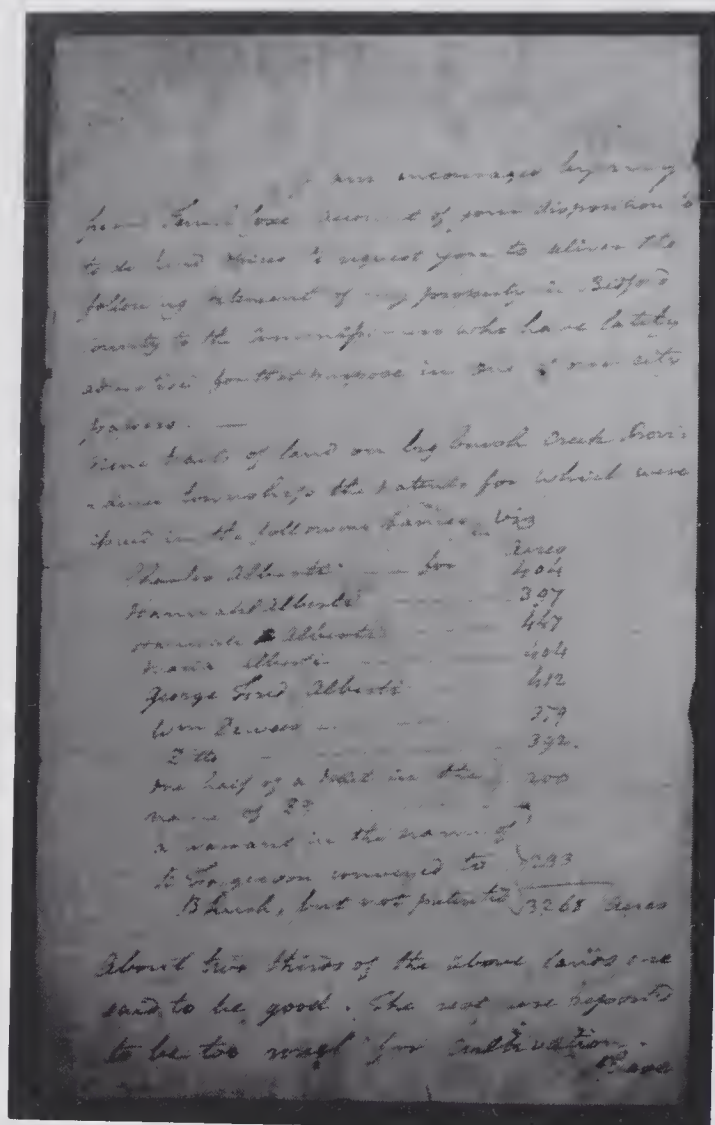 am encouraged by my
friend Saml Coxe account of your disposition to
to do kind offices to request you to deliver the
following statement of my property in Bedford
county to the Commissioners who have lately
advertised for that purpose in one of our city
papers. —
Nine tracts of land on Brush Creek Provi-
dence township the patents for which were
issued in the following names, viz
Acres
Charles Alberti — for 404
Hannah Alberti 397
Alberti 447
Maria Alberti 404
George Fred Alberti 412
Wm Dewees 359
Ditto 392.
One half of a tract in the
name of Do 200
a warrant in the name of
Ferguson conveyed to
B Rush, but not patented 293
3268 Acres
About two thirds of the above lands are
said to be good. The rest are reported
to be too rough for cultivation.